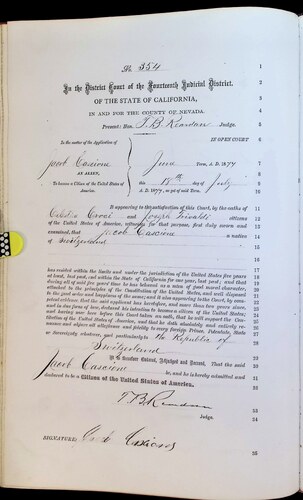 No. 354
In the District Court of the Fourteenth Judicial District.
OF THE STATE OF CALIFORNIA,
IN AND FOR THE COUNTY OF NEVADA.
Present: Hon. T. B. Reardan Judge.
In the matter of the Application of
IN OPEN COURT
Jacob Cascioni
June Term, A. D. 1877
AN ALIEN,
To become a Citizen of the United States of America.
this 17th day of July
A. D. 1877, as yet of said Term.
It appearing to the satisfaction of this Court, by the oaths of
Celestio Croci and Joseph citizens
of the United States of America, witnesses for that purpose, first duly sworn and
examined, that Jacob Cascioni a native
of Switzerland
has resided within the limits and under the jurisdiction of the United States five years
at least, last past, and within the State of California for one year, last past; and that
during all of said five years' time he has behaved as a man of good moral character,
attached to the principles of the Constitution of the United States, and well disposed
to the good order and happiness of the same; and it also appearing to the Court, by competent
evidence, that the said applicant has heretofore, and more than two years since,
and in due form of law, declared his intention to become a citizen of the United States,
and having now here before this Court taken an oath, that he will support the Constitution
of the United States of America, and that he doth absolutely and entirely renounce
and abjure all allegiance and fidelity to every foreign Prince, Potentate, State
or Sovereignty whatever, and particularly to the Republic of
Switzerland
It is therefore Ordered, Adjudged and Decreed, That the said
Jacob Cascioni be, and he is hereby admitted and
declared to be a Citizen of the United States of America.
T. B. Reardan
Judge.
SIGNATURE: